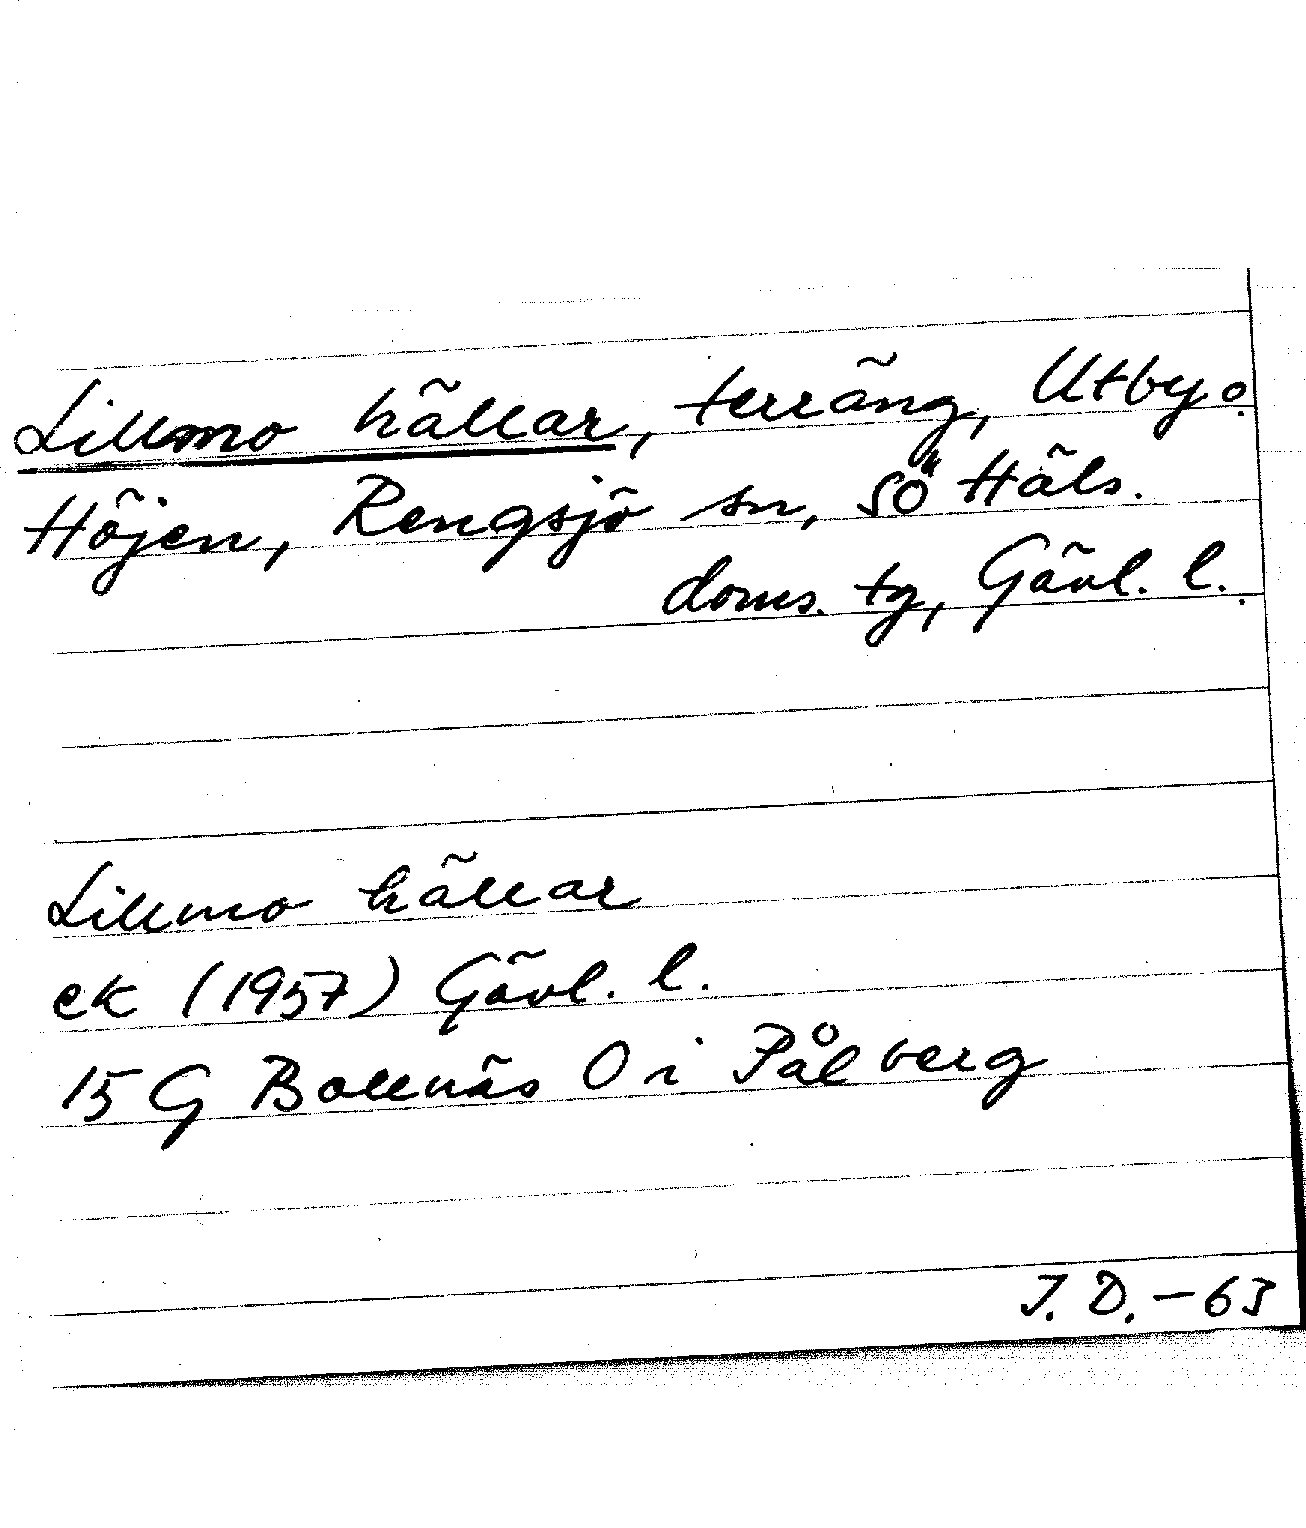 Lillmo hällar, terräng, Utby o.
Höjen, Rengsjö sn, SÖ Häls.
doms. tg, Gävl. l.
Lillmo hällar
ek (1957) Gävl. l.
15 G Bollnäs O i Pålberg
J. D. - 63